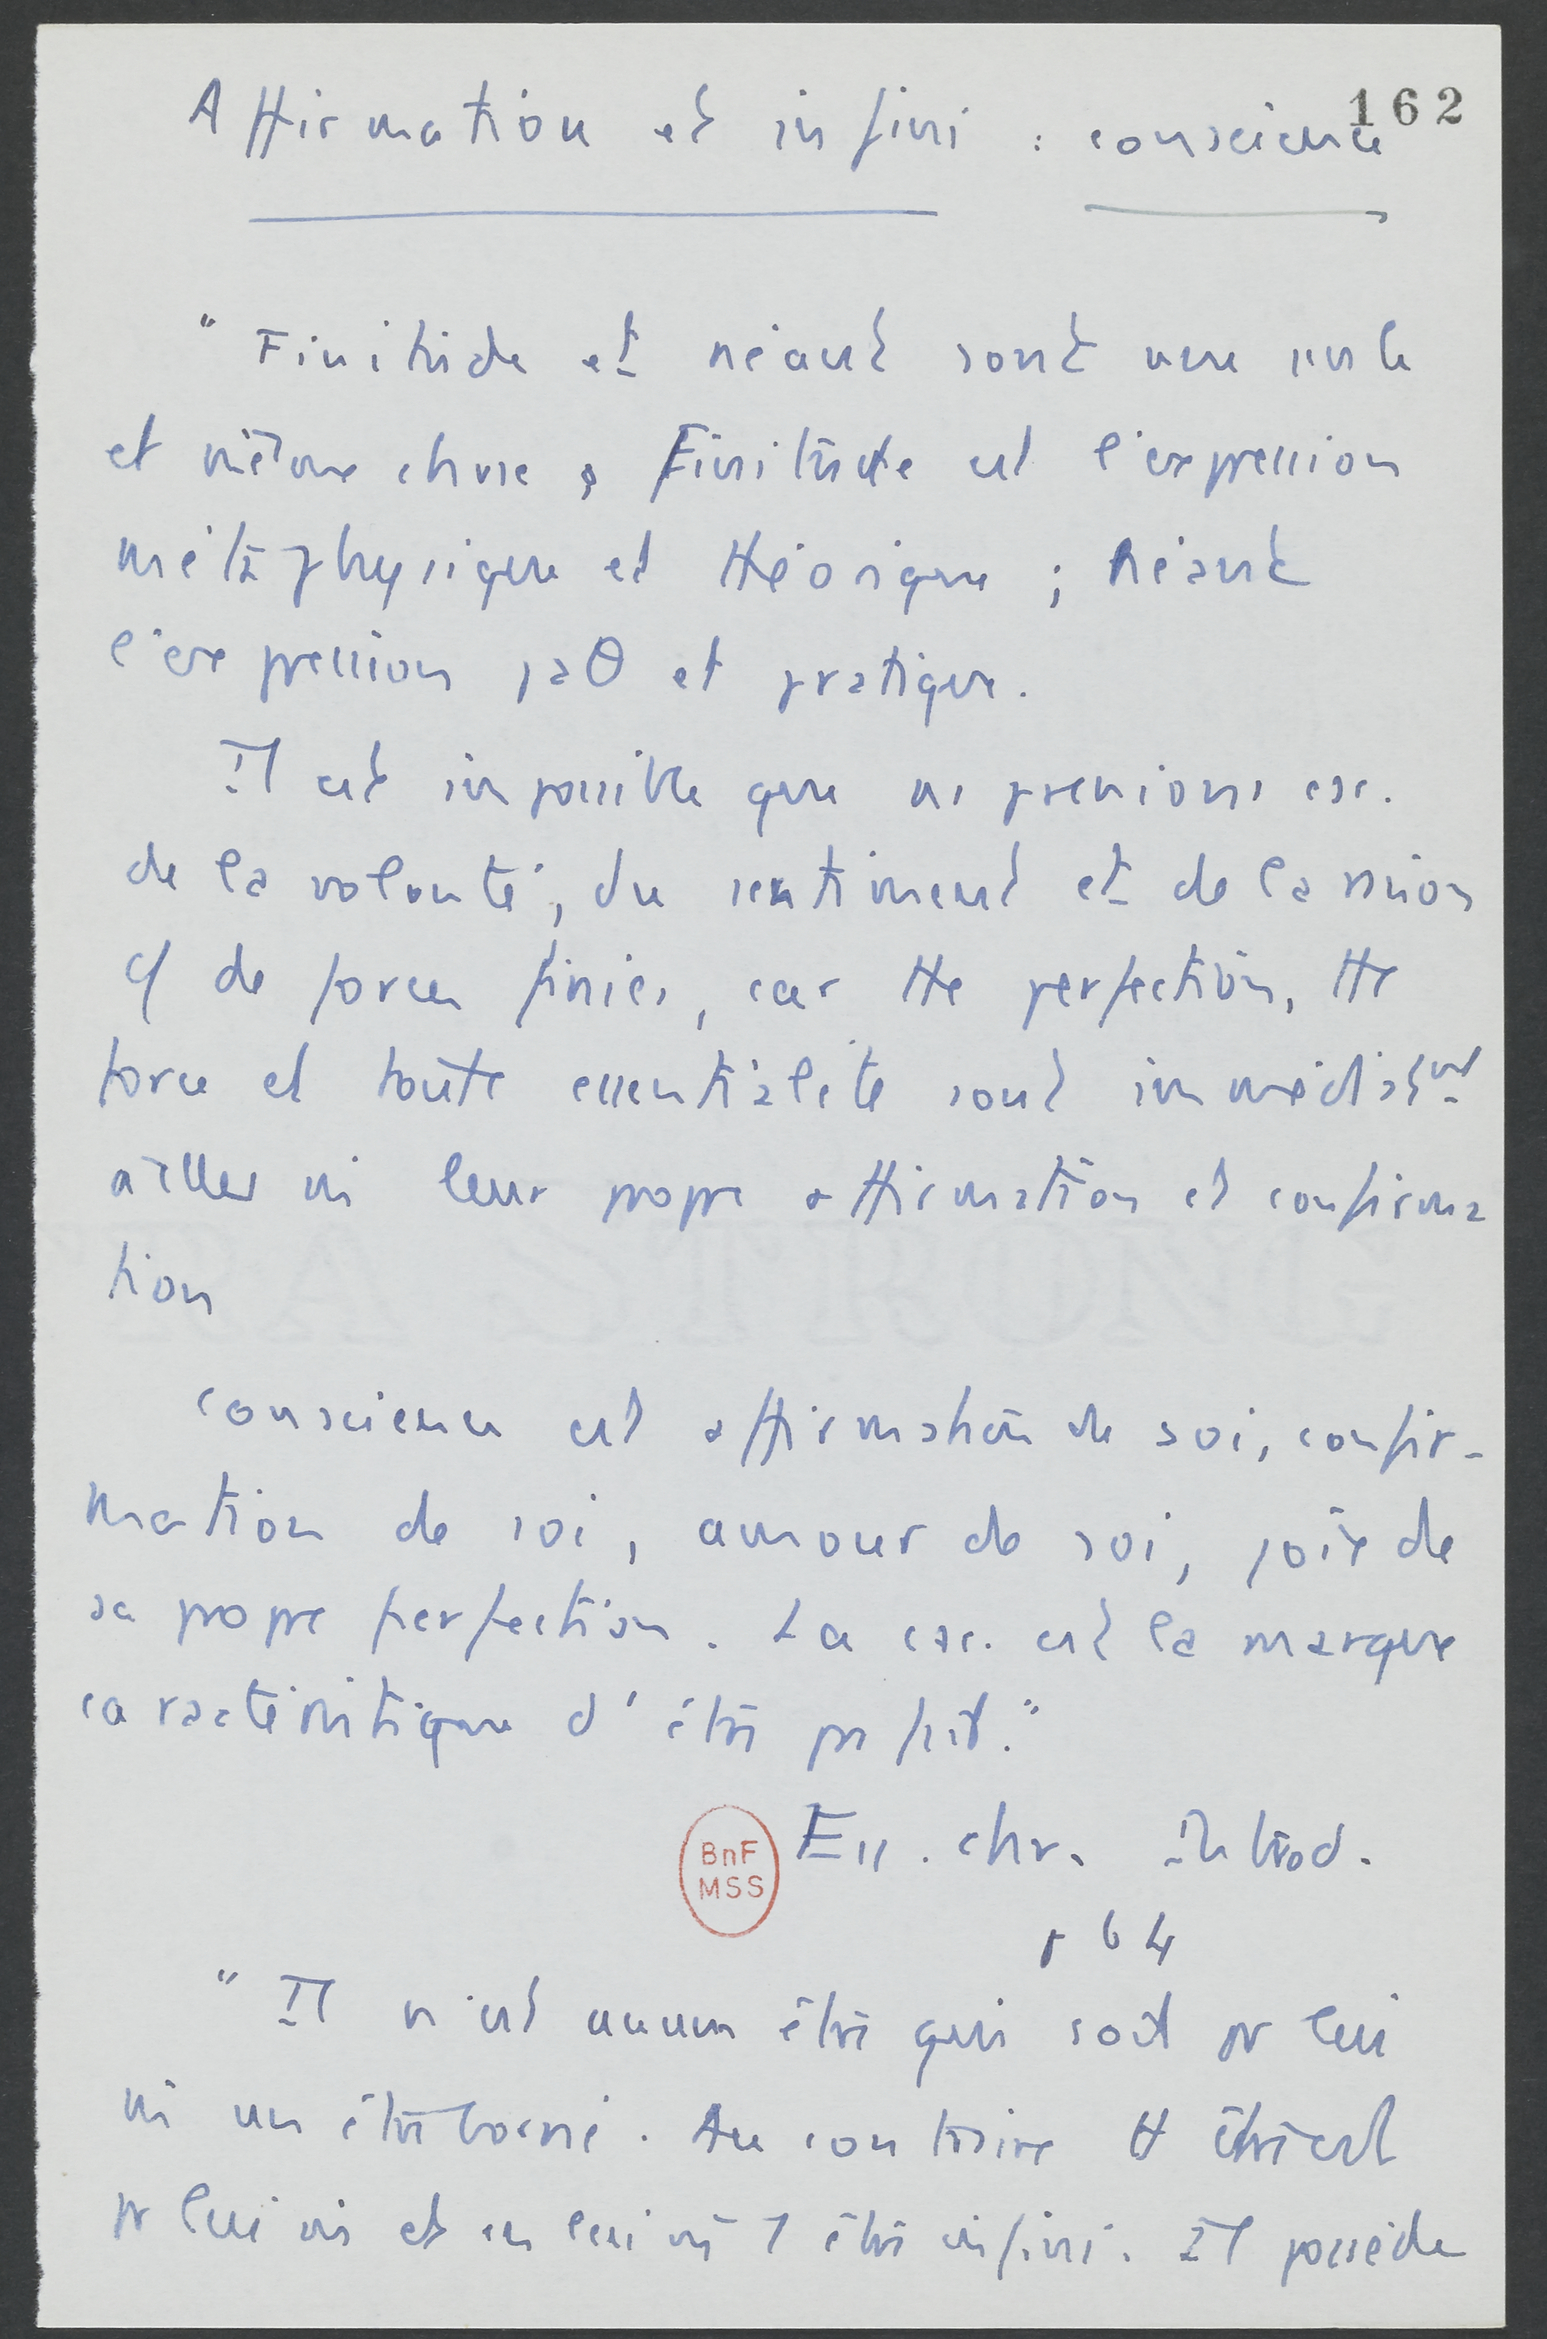 162
Affirmation et infini : conscience
" Finitude et néant sont une seule
et même chose ; Finitude est l'expression
métaphysique et théorique ; néant
l'expression paθ et pratique.
Il est impossible que ns prenions csc.
de la volonté, du sentiment et de la raison
cf de forces finies, car tte perfection, tte
force et toute essentialité sont immédiatmt
elles mˢ leur propre affirmation et confirma
tion
conscience est affirmation de soi, confir-
mation de soi, amour de soi, joie de
sa propre perfection. La csc. est la marque
caractéristique d'être parfait."
Ess. chr. Introd.
p 64
BnF
MSS
" Il n'est aucun être qui soit pr lui
m̂ un être borné. Au contraire tt être est
pr lui m̂ et en lui m̂ 1 être infini. Il possède